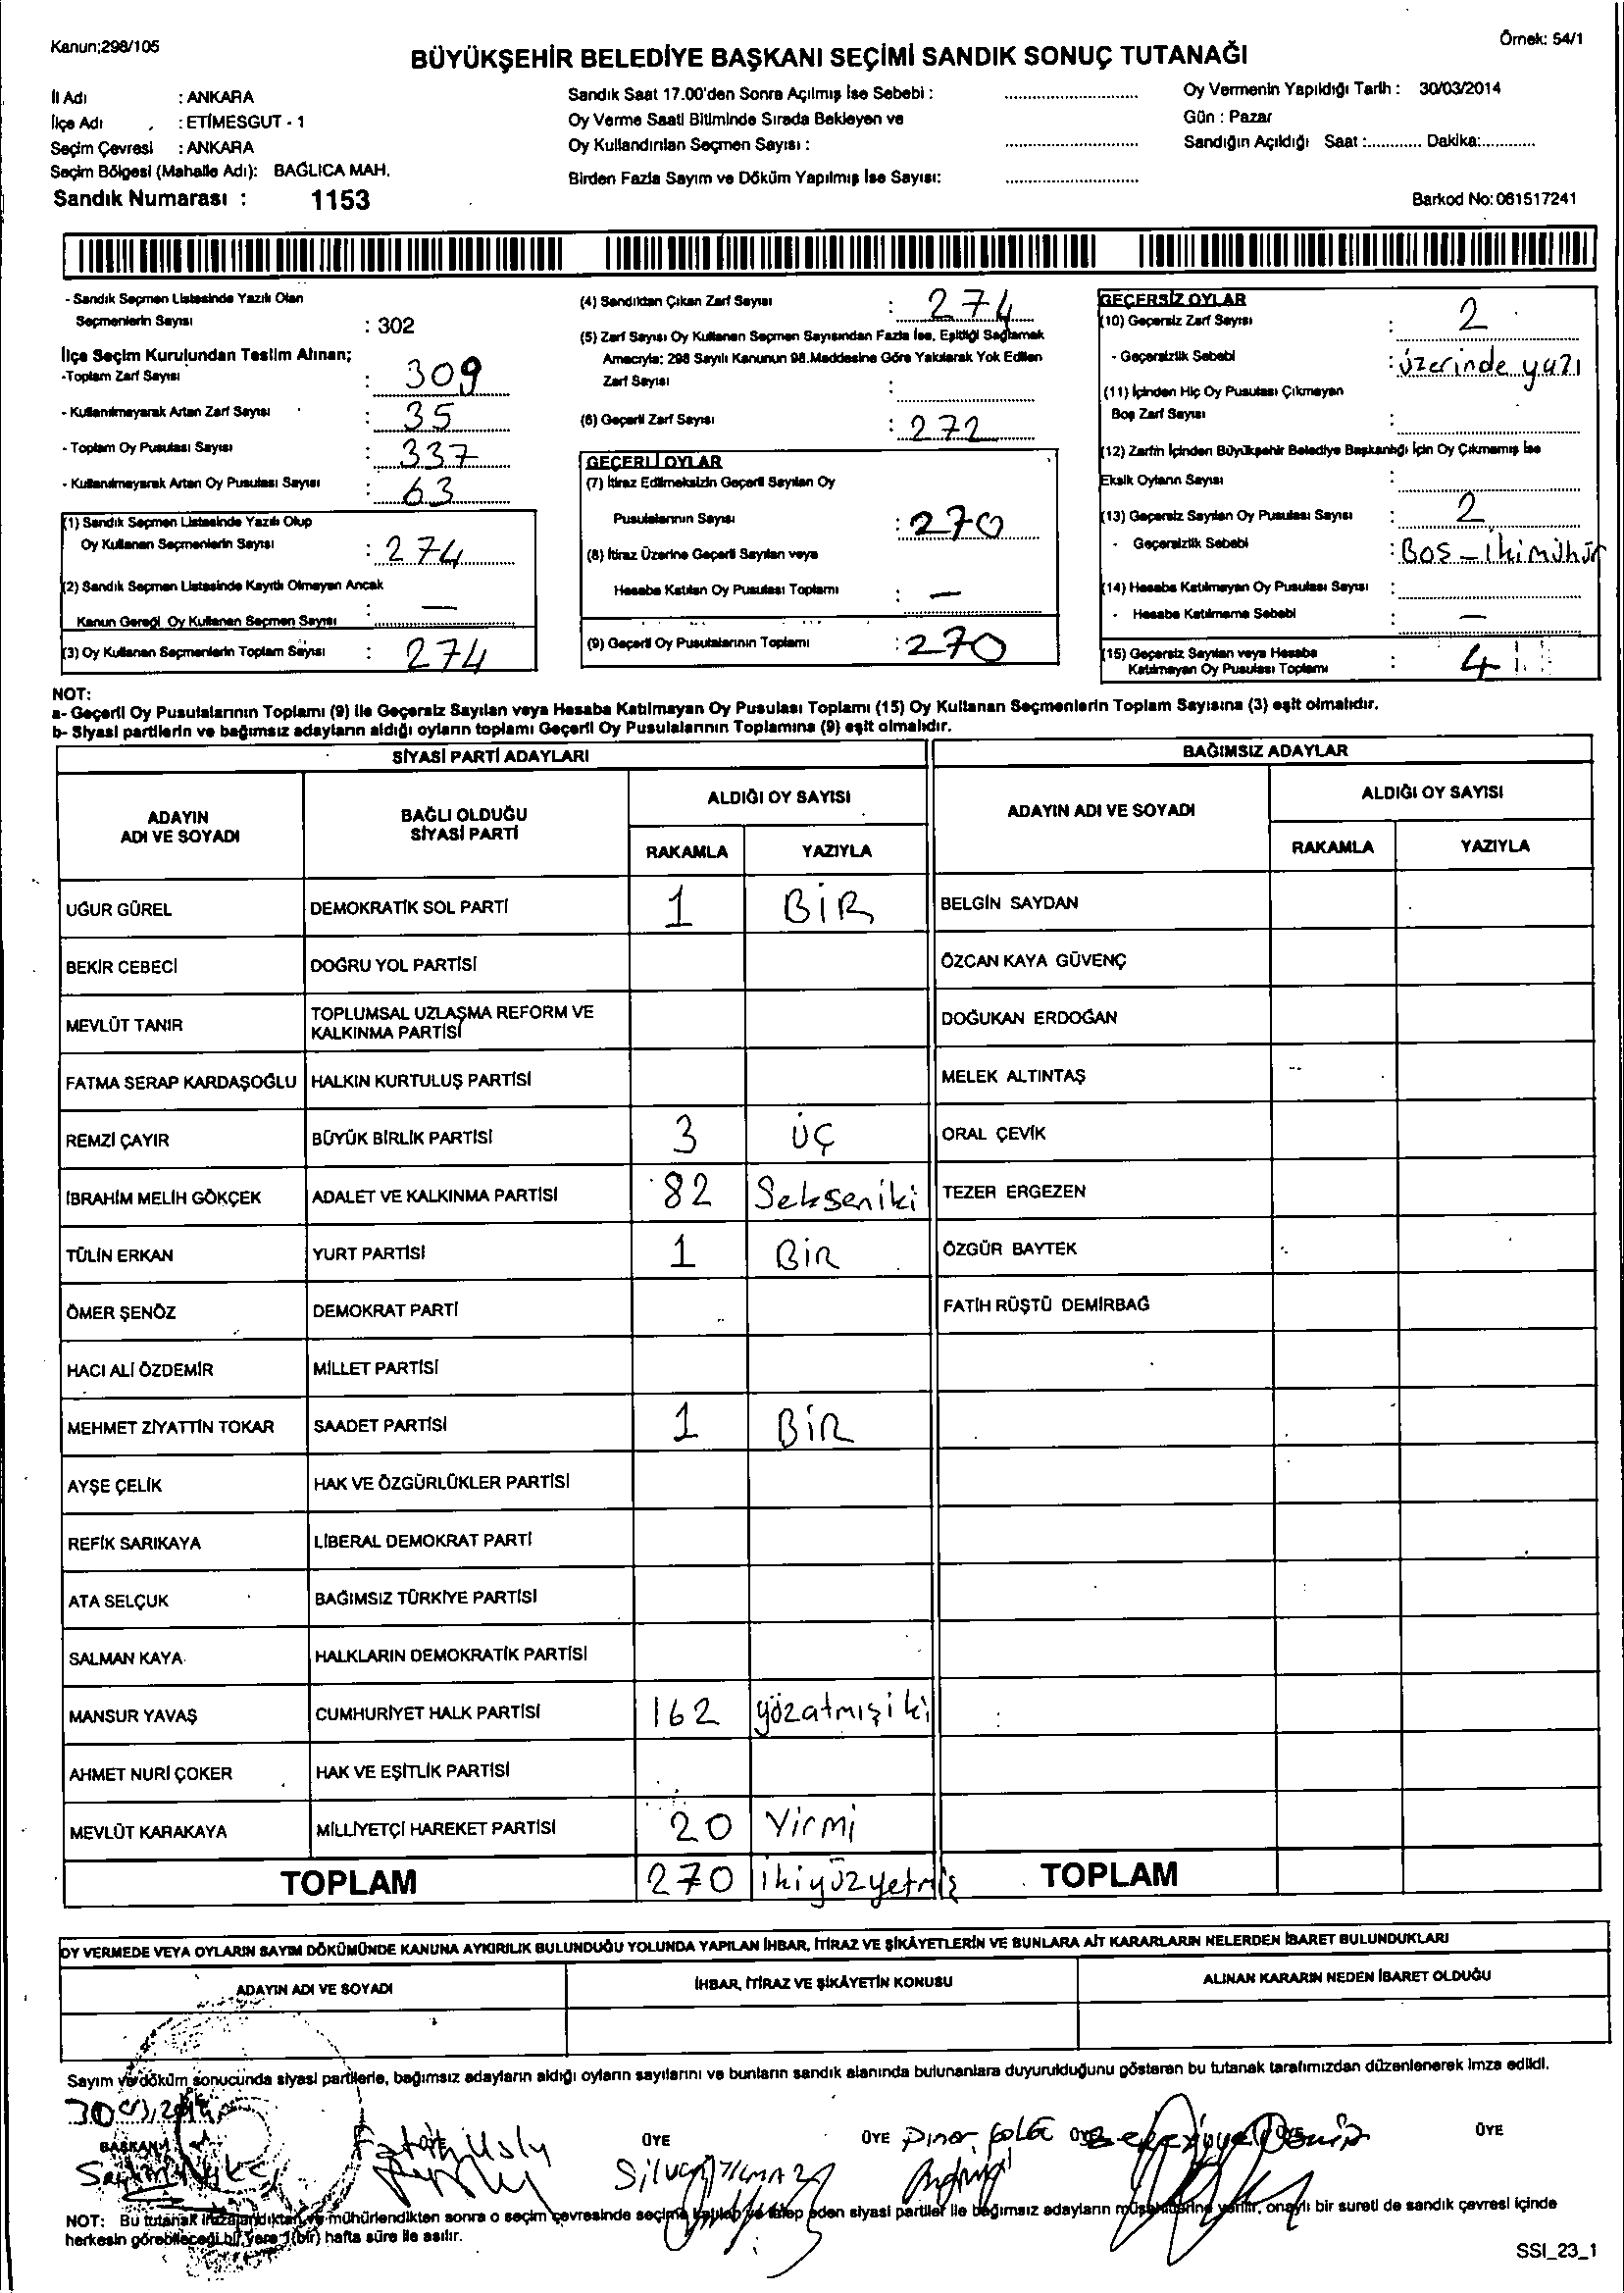 Kanun;298/105
Örnek: 54/1
BÜYÜKŞEHİR BELEDİYE BAŞKANI SEÇİMİ SANDIK SONUÇ TUTANAĞI
İl Adı : ANKARA
İlçe Adı : ETİMESGUT - 1
Seçim Çevresi : ANKARA
Seçim Bölgesi (Mahalle Adı): BAĞLICA MAH.
Sandık Numarası : 1153
Sandık Saat 17.00'den Sonra Açılmış İse Sebebi :
Oy Verme Saati Bitiminde Sırada Bekleyen ve
Oy Kullandırılan Seçmen Sayısı :
Birden Fazla Sayım ve Döküm Yapılmış İse Sayısı:
Oy Vermenin Yapıldığı Tarih : 30/03/2014
Gün : Pazar
Sandığın Açıldığı Saat :............ Dakika:............
Barkod No: 061517241
- Sandık Seçmen Listesinde Yazılı Olan
Seçmenlerin Sayısı : 302
İlçe Seçim Kurulundan Teslim Alınan;
-Toplam Zarf Sayısı : 309
- Kullanılmayarak Artan Zarf Sayısı : 35
- Toplam Oy Pusulası Sayısı : 337
- Kullanılmayarak Artan Oy Pusulası Sayısı : 63
(1) Sandık Seçmen Listesinde Yazılı Olup
Oy Kullanan Seçmenlerin Sayısı : 274
(2) Sandık Seçmen Listesinde Kayıtlı Olmayan Ancak
Kanun Gereği Oy Kullanan Seçmen Sayısı : —
(3) Oy Kullanan Seçmenlerin Toplam Sayısı : 274
(4) Sandıktan Çıkan Zarf Sayısı : 274
(5) Zarf Sayısı Oy Kullanan Seçmen Sayısından Fazla İse, Eşitliği Sağlamak
Amacıyla; 298 Sayılı Kanunun 98.Maddesine Göre Yakılarak Yok Edilen
Zarf Sayısı :
(6) Geçerli Zarf Sayısı : 272
GEÇERLİ OYLAR
(7) İtiraz Edilmeksizin Geçerli Sayılan Oy
Pusulalarının Sayısı : 270
(8) İtiraz Üzerine Geçerli Sayılan veya
Hesaba Katılan Oy Pusulası Toplamı : —
(9) Geçerli Oy Pusulalarının Toplamı : 270
GEÇERSİZ OYLAR
(10) Geçersiz Zarf Sayısı : 2
- Geçersizlik Sebebi : üzerinde yazı
(11) İçinden Hiç Oy Pusulası Çıkmayan
Boş Zarf Sayısı :
(12) Zarfın İçinden Büyükşehir Belediye Başkanlığı İçin Oy Çıkmamış İse
Eksik Oyların Sayısı :
(13) Geçersiz Sayılan Oy Pusulası Sayısı : 2
- Geçersizlik Sebebi : Boş - İki mühür
(14) Hesaba Katılmayan Oy Pusulası Sayısı :
- Hesaba Katılmama Sebebi : —
(15) Geçersiz Sayılan veya Hesaba
Katılmayan Oy Pusulası Toplamı : 4
NOT:
a- Geçerli Oy Pusulalarının Toplamı (9) ile Geçersiz Sayılan veya Hesaba Katılmayan Oy Pusulası Toplamı (15) Oy Kullanan Seçmenlerin Toplam Sayısına (3) eşit olmalıdır.
b- Siyasi partilerin ve bağımsız adayların aldığı oyların toplamı Geçerli Oy Pusulalarının Toplamına (9) eşit olmalıdır.
SİYASİ PARTİ ADAYLARI
ADAYIN
ADI VE SOYADI
BAĞLI OLDUĞU
SİYASİ PARTİ
ALDIĞI OY SAYISI
RAKAMLA YAZIYLA
UĞUR GÜREL DEMOKRATİK SOL PARTİ 1 BİR
BEKİR CEBECİ DOĞRU YOL PARTİSİ
MEVLÜT TANIR TOPLUMSAL UZLAŞMA REFORM VE
KALKINMA PARTİSİ
FATMA SERAP KARDAŞOĞLU HALKIN KURTULUŞ PARTİSİ
REMZİ ÇAYIR BÜYÜK BİRLİK PARTİSİ 3 ÜÇ
İBRAHİM MELİH GÖKÇEK ADALET VE KALKINMA PARTİSİ 82 Sekseniki
TÜLİN ERKAN YURT PARTİSİ 1 BİR
ÖMER ŞENÖZ DEMOKRAT PARTİ
HACI ALİ ÖZDEMİR MİLLET PARTİSİ
MEHMET ZİYATTİN TOKAR SAADET PARTİSİ 1 BİR
AYŞE ÇELİK HAK VE ÖZGÜRLÜKLER PARTİSİ
REFİK SARIKAYA LİBERAL DEMOKRAT PARTİ
ATA SELÇUK BAĞIMSIZ TÜRKİYE PARTİSİ
SALMAN KAYA HALKLARIN DEMOKRATİK PARTİSİ
MANSUR YAVAŞ CUMHURİYET HALK PARTİSİ 162 yözatmışiki
AHMET NURİ ÇOKER HAK VE EŞİTLİK PARTİSİ
MEVLÜT KARAKAYA MİLLİYETÇİ HAREKET PARTİSİ 20 Yirmi
TOPLAM 270 ikiyüzyetmiş
BAĞIMSIZ ADAYLAR
ADAYIN ADI VE SOYADI
ALDIĞI OY SAYISI
RAKAMLA YAZIYLA
BELGİN SAYDAN
ÖZCAN KAYA GÜVENÇ
DOĞUKAN ERDOĞAN
MELEK ALTINTAŞ
ORAL ÇEVİK
TEZER ERGEZEN
ÖZGÜR BAYTEK
FATİH RÜŞTÜ DEMİRBAĞ
TOPLAM
OY VERMEDE VEYA OYLARIN SAYIM DÖKÜMÜNDE KANUNA AYKIRILIK BULUNDUĞU YOLUNDA YAPILAN İHBAR, İTİRAZ VE ŞİKÂYETLERİN VE BUNLARA AİT KARARLARIN NELERDEN İBARET BULUNDUKLARI
ADAYIN ADI VE SOYADI
İHBAR, İTİRAZ VE ŞİKÂYETİN KONUSU
ALINAN KARARIN NEDEN İBARET OLDUĞU
Sayım ve döküm sonucunda siyasi partilerle, bağımsız adayların aldığı oyların sayılarını ve bunların sandık alanında bulunanlara duyurulduğunu gösteren bu tutanak tarafımızdan düzenlenerek imza edildi.
BAŞKAN
Fatih Uslu
ÜYE
ÜYE Pınar
ÜYE
NOT: Bu tutanak imzalandıktan ve mühürlendikten sonra o seçim çevresinde seçime katılan ve talep eden siyasi partiler ile bağımsız adayların müşahitlerine verilir, onaylı bir sureti de sandık çevresi içinde
herkesin görebileceği bir yere 1(bir) hafta süre ile asılır.
SSI_23_1